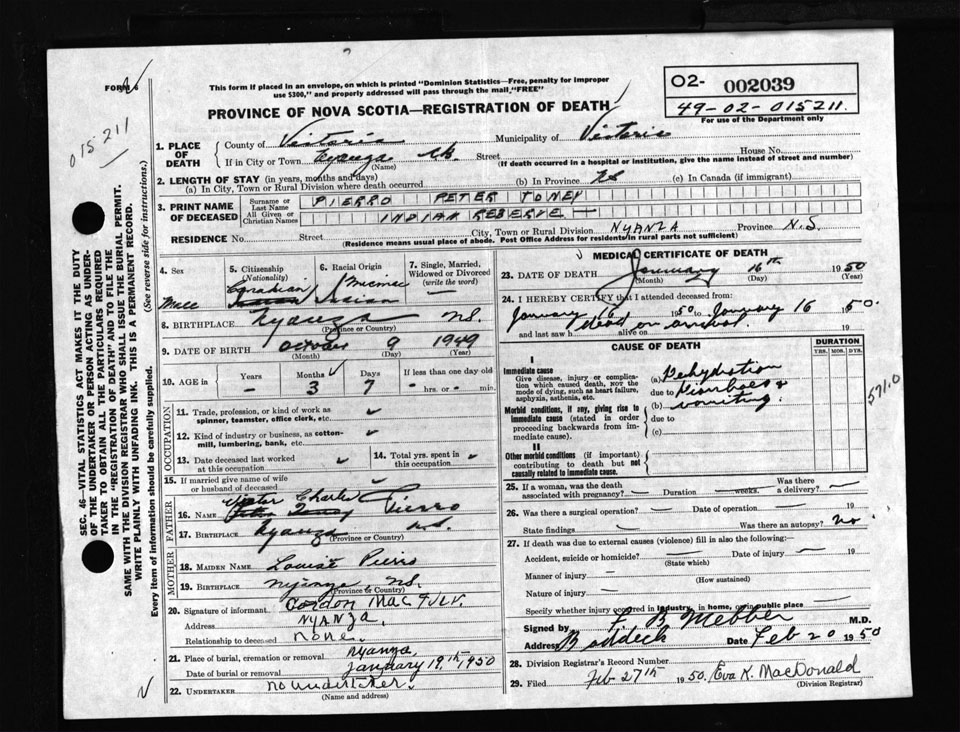 FORM 6
This form if placed in an envelope, on which is printed "Dominion Statistics—Free, penalty for improper
use $300," and properly addressed will pass through the mail "FREE"
PROVINCE OF NOVA SCOTIA—REGISTRATION OF DEATH
02- 002039
49-02-015211.
For use of the Department only
015211
SEC. 46—VITAL STATISTICS ACT MAKES IT THE DUTY
OF THE UNDERTAKER OR PERSON ACTING AS UNDER-
TAKER TO OBTAIN ALL THE PARTICULARS REQUIRED
IN THE "REGISTRATION OF DEATH" AND TO FILE THE
SAME WITH THE DIVISION REGISTRAR WHO SHALL ISSUE THE BURIAL PERMIT.
WRITE PLAINLY WITH UNFADING INK. THIS IS A PERMANENT RECORD.
Every item of information should be carefully supplied. (See reverse side for instructions.)
1. PLACE OF DEATH
County of Victoria Municipality of Victoria
If in City or Town Nyanza Street House No.
(Name) (If death occurred in a hospital or institution, give the name instead of street and number)
2. LENGTH OF STAY (in years, months and days)
(a) In City, Town or Rural Division where death occurred (b) In Province NS (c) In Canada (if immigrant)
3. PRINT NAME OF DECEASED
Surname or Last Name PIERRO PETER TONEY
All Given or Christian Names INDIAN RESERVE —
RESIDENCE No. Street City, Town or Rural Division NYANZA Province N.S
(Residence means usual place of abode. Post Office Address for residents in rural parts not sufficient)
4. Sex Male
5. Citizenship (Nationality) Canadian
6. Racial Origin Micmac Indian
7. Single, Married, Widowed or Divorced (write the word)
8. BIRTHPLACE Nyanza NS.
(Province or Country)
9. DATE OF BIRTH October 9 1949
(Month) (Day) (Year)
10. AGE in Years Months Days If less than one day old
— 3 7 - hrs. or - min.
OCCUPATION
11. Trade, profession, or kind of work as
spinner, teamster, office clerk, etc.
12. Kind of industry or business, as cotton-
mill, lumbering, bank, etc.
13. Date deceased last worked
at this occupation
14. Total yrs. spent in
this occupation
15. If married give name of wife
or husband of deceased
FATHER
16. NAME Charles Pierro
17. BIRTHPLACE Nyanza N.S.
(Province or Country)
MOTHER
18. MAIDEN NAME Louise Pierro
19. BIRTHPLACE Nyanza, NS.
(Province or Country)
20. Signature of informant Gordon Mac
Address NYANZA
Relationship to deceased none.
21. Place of burial, cremation or removal Nyanza,
Date of burial or removal January 19th, 1950
22. UNDERTAKER no undertaker.
(Name and address)
MEDICAL CERTIFICATE OF DEATH
23. DATE OF DEATH January 16th 1950
(Month) (Day) (Year)
24. I HEREBY CERTIFY that I attended deceased from:
January 16 1950 to January 16 50.
and last saw h alive on dead on arrival. 19
CAUSE OF DEATH
DURATION
YRS. MOS. DYS.
I
Immediate cause
Give disease, injury or compli-
cation which caused death, NOT the
mode of dying, such as heart failure,
asphyxia, asthenia, etc.
(a) Dehydration
due to Diarrhoea &
(b) vomiting.
due to
(c)
571.0
Morbid conditions, if any, giving rise to
immediate cause (stated in order
proceeding backwards from im-
mediate cause).
II
Other morbid conditions (if important)
contributing to death but not
causally related to immediate cause.
25. If a woman, was the death
associated with pregnancy? — Duration weeks. Was there
a delivery? —
26. Was there a surgical operation? — Date of operation — 19
State findings — Was there an autopsy? No
27. If death was due to external causes (violence) fill in also the following:—
Accident, suicide or homicide? — Date of injury — 19
(State which)
Manner of injury —
(How sustained)
Nature of injury —
Specify whether injury occurred in industry, in home, or in public place —
Signed by F B M.D.
Address Baddeck Date Feb 20 1950
28. Division Registrar's Record Number
29. Filed Feb 27th 1950. Eva K. MacDonald
(Division Registrar)